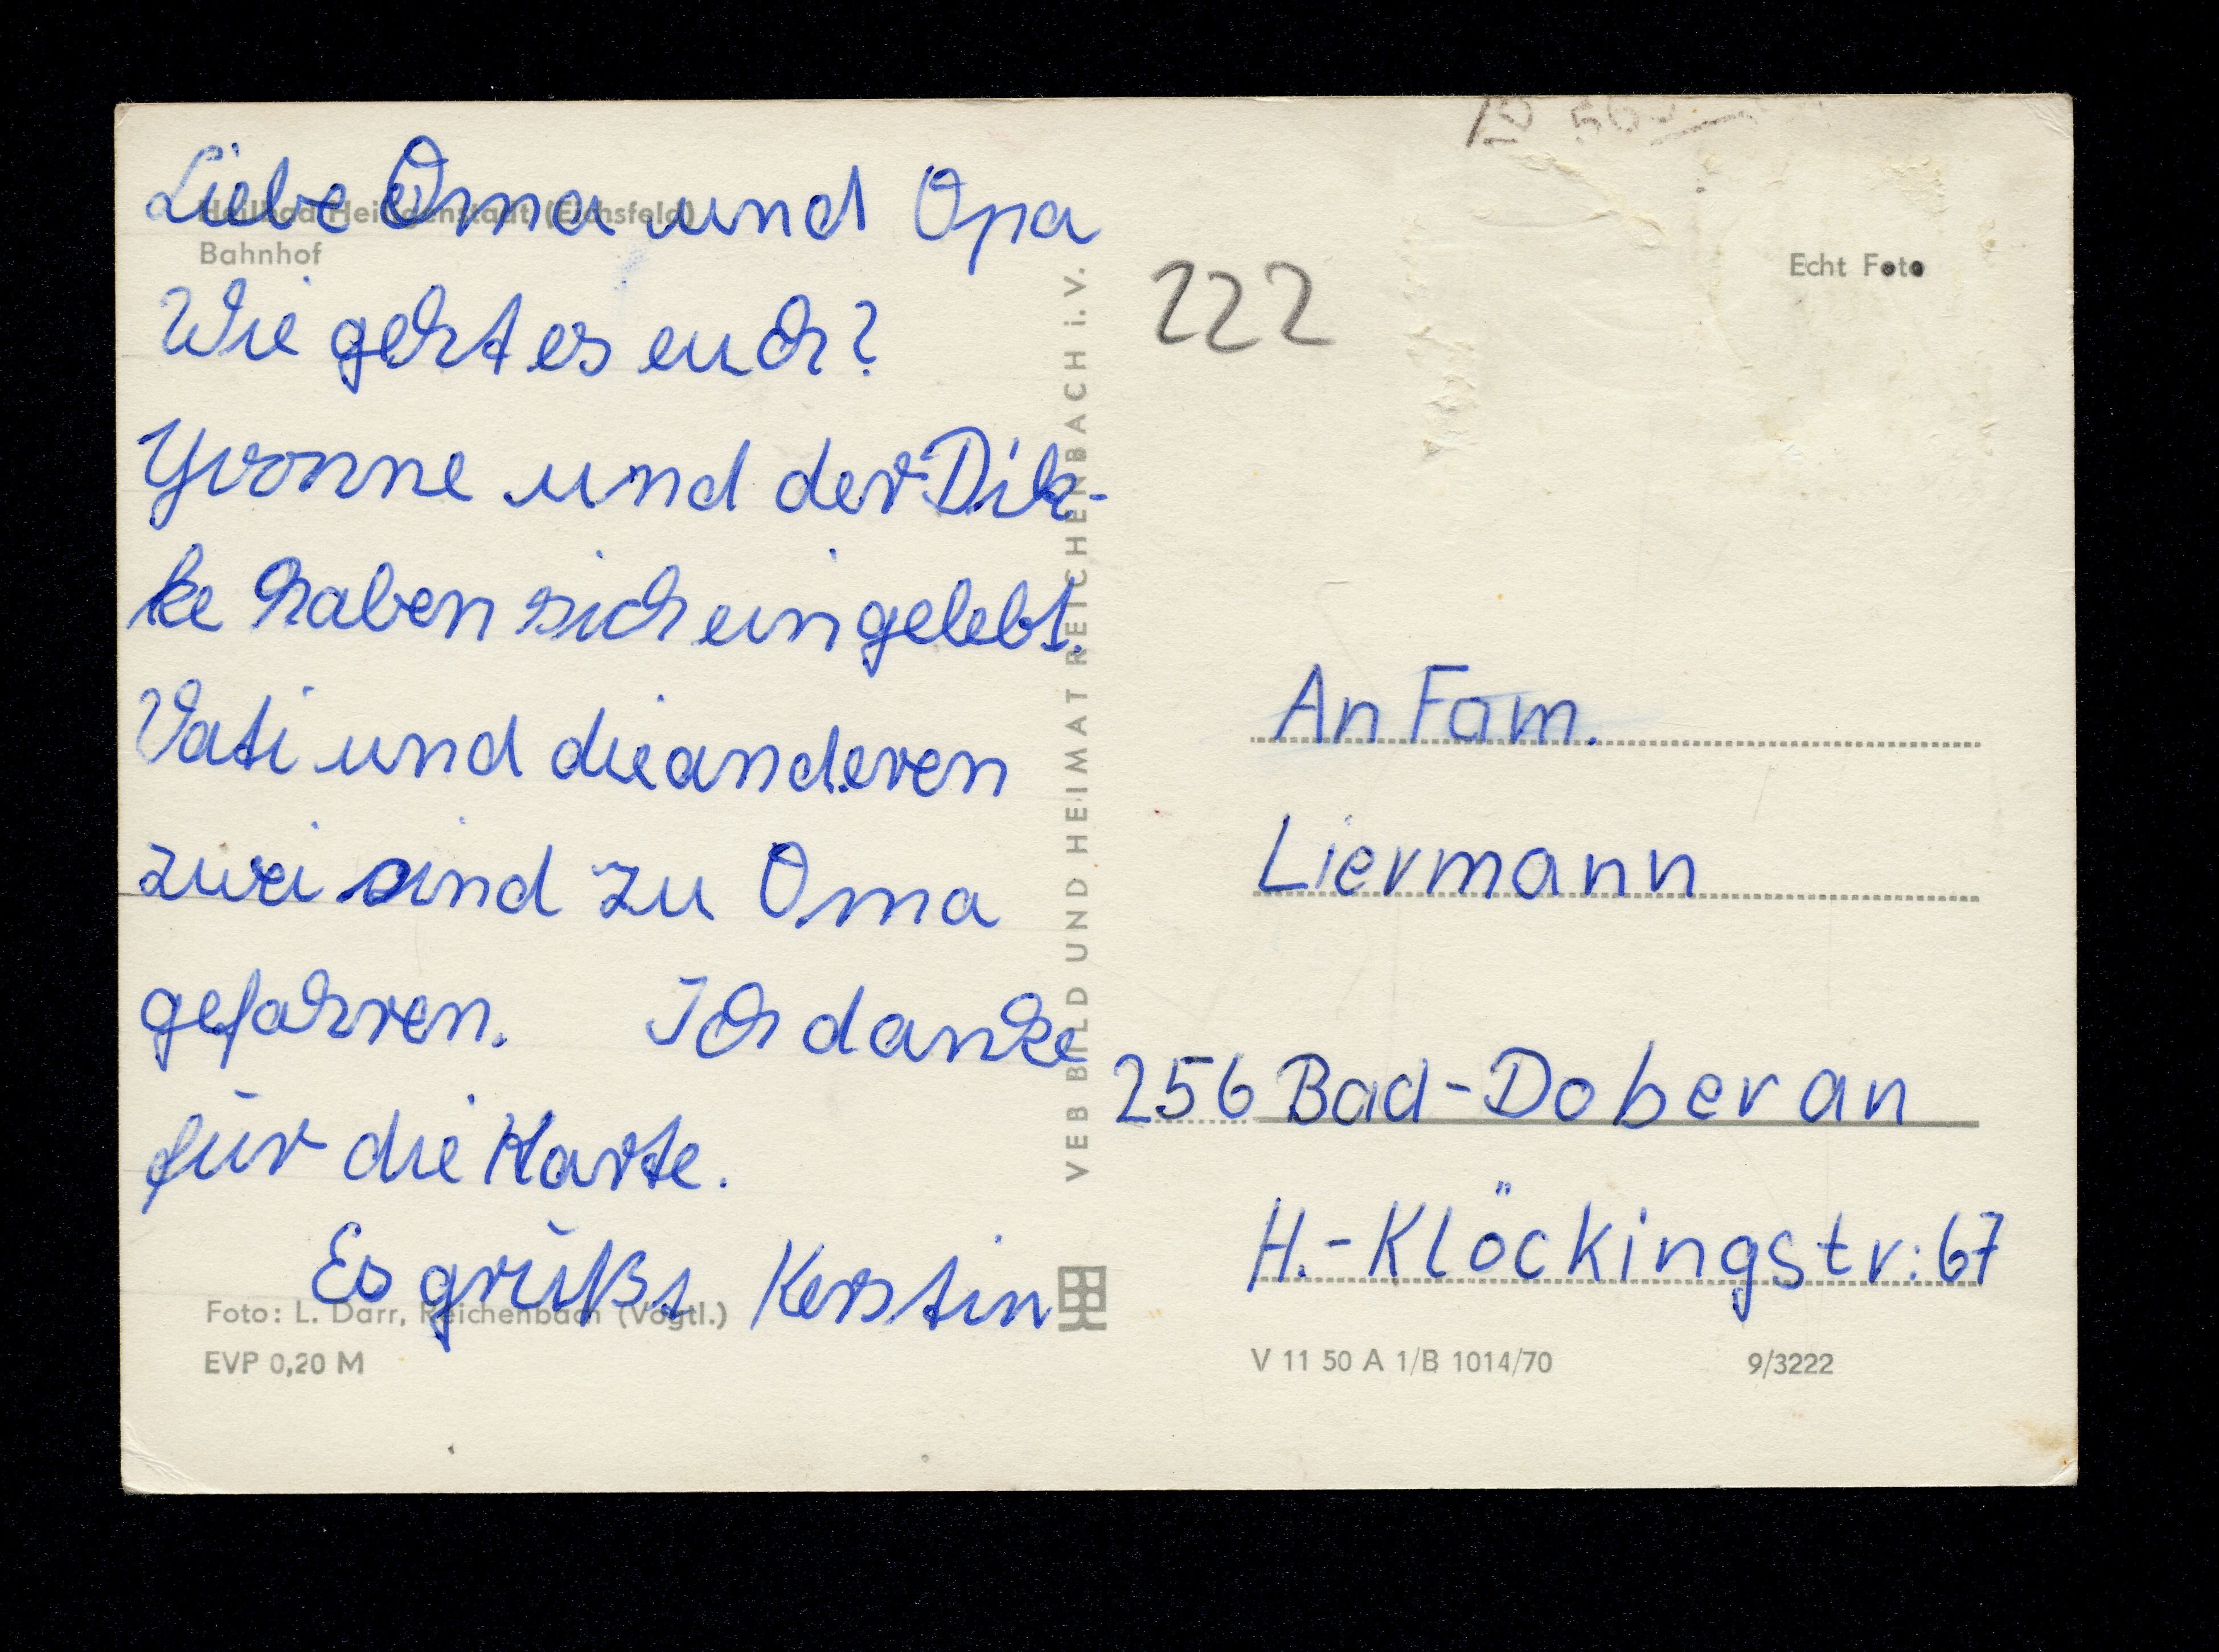 Liebe Oma und Opa
Wie geht es euch?
Yvonne und der Dik-
ke haben sich eingelebt.
Vati und die anderen
zwei sind zu Oma
gefahren. Ich danke
für die Karte.
Es grüßt Kerstin
Heilbad Heiligenstadt (Eichsfeld)
Bahnhof
Foto: L. Darr, Reichenbach (Vogtl.)
EVP 0,20 M
VEB BILD UND HEIMAT REICHENBACH i. V.
222
Echt Foto
An Fam.
Liermann
256 Bad-Doberan
H.-Klöckingstr: 67
V 11 50 A 1/B 1014/70
9/3222